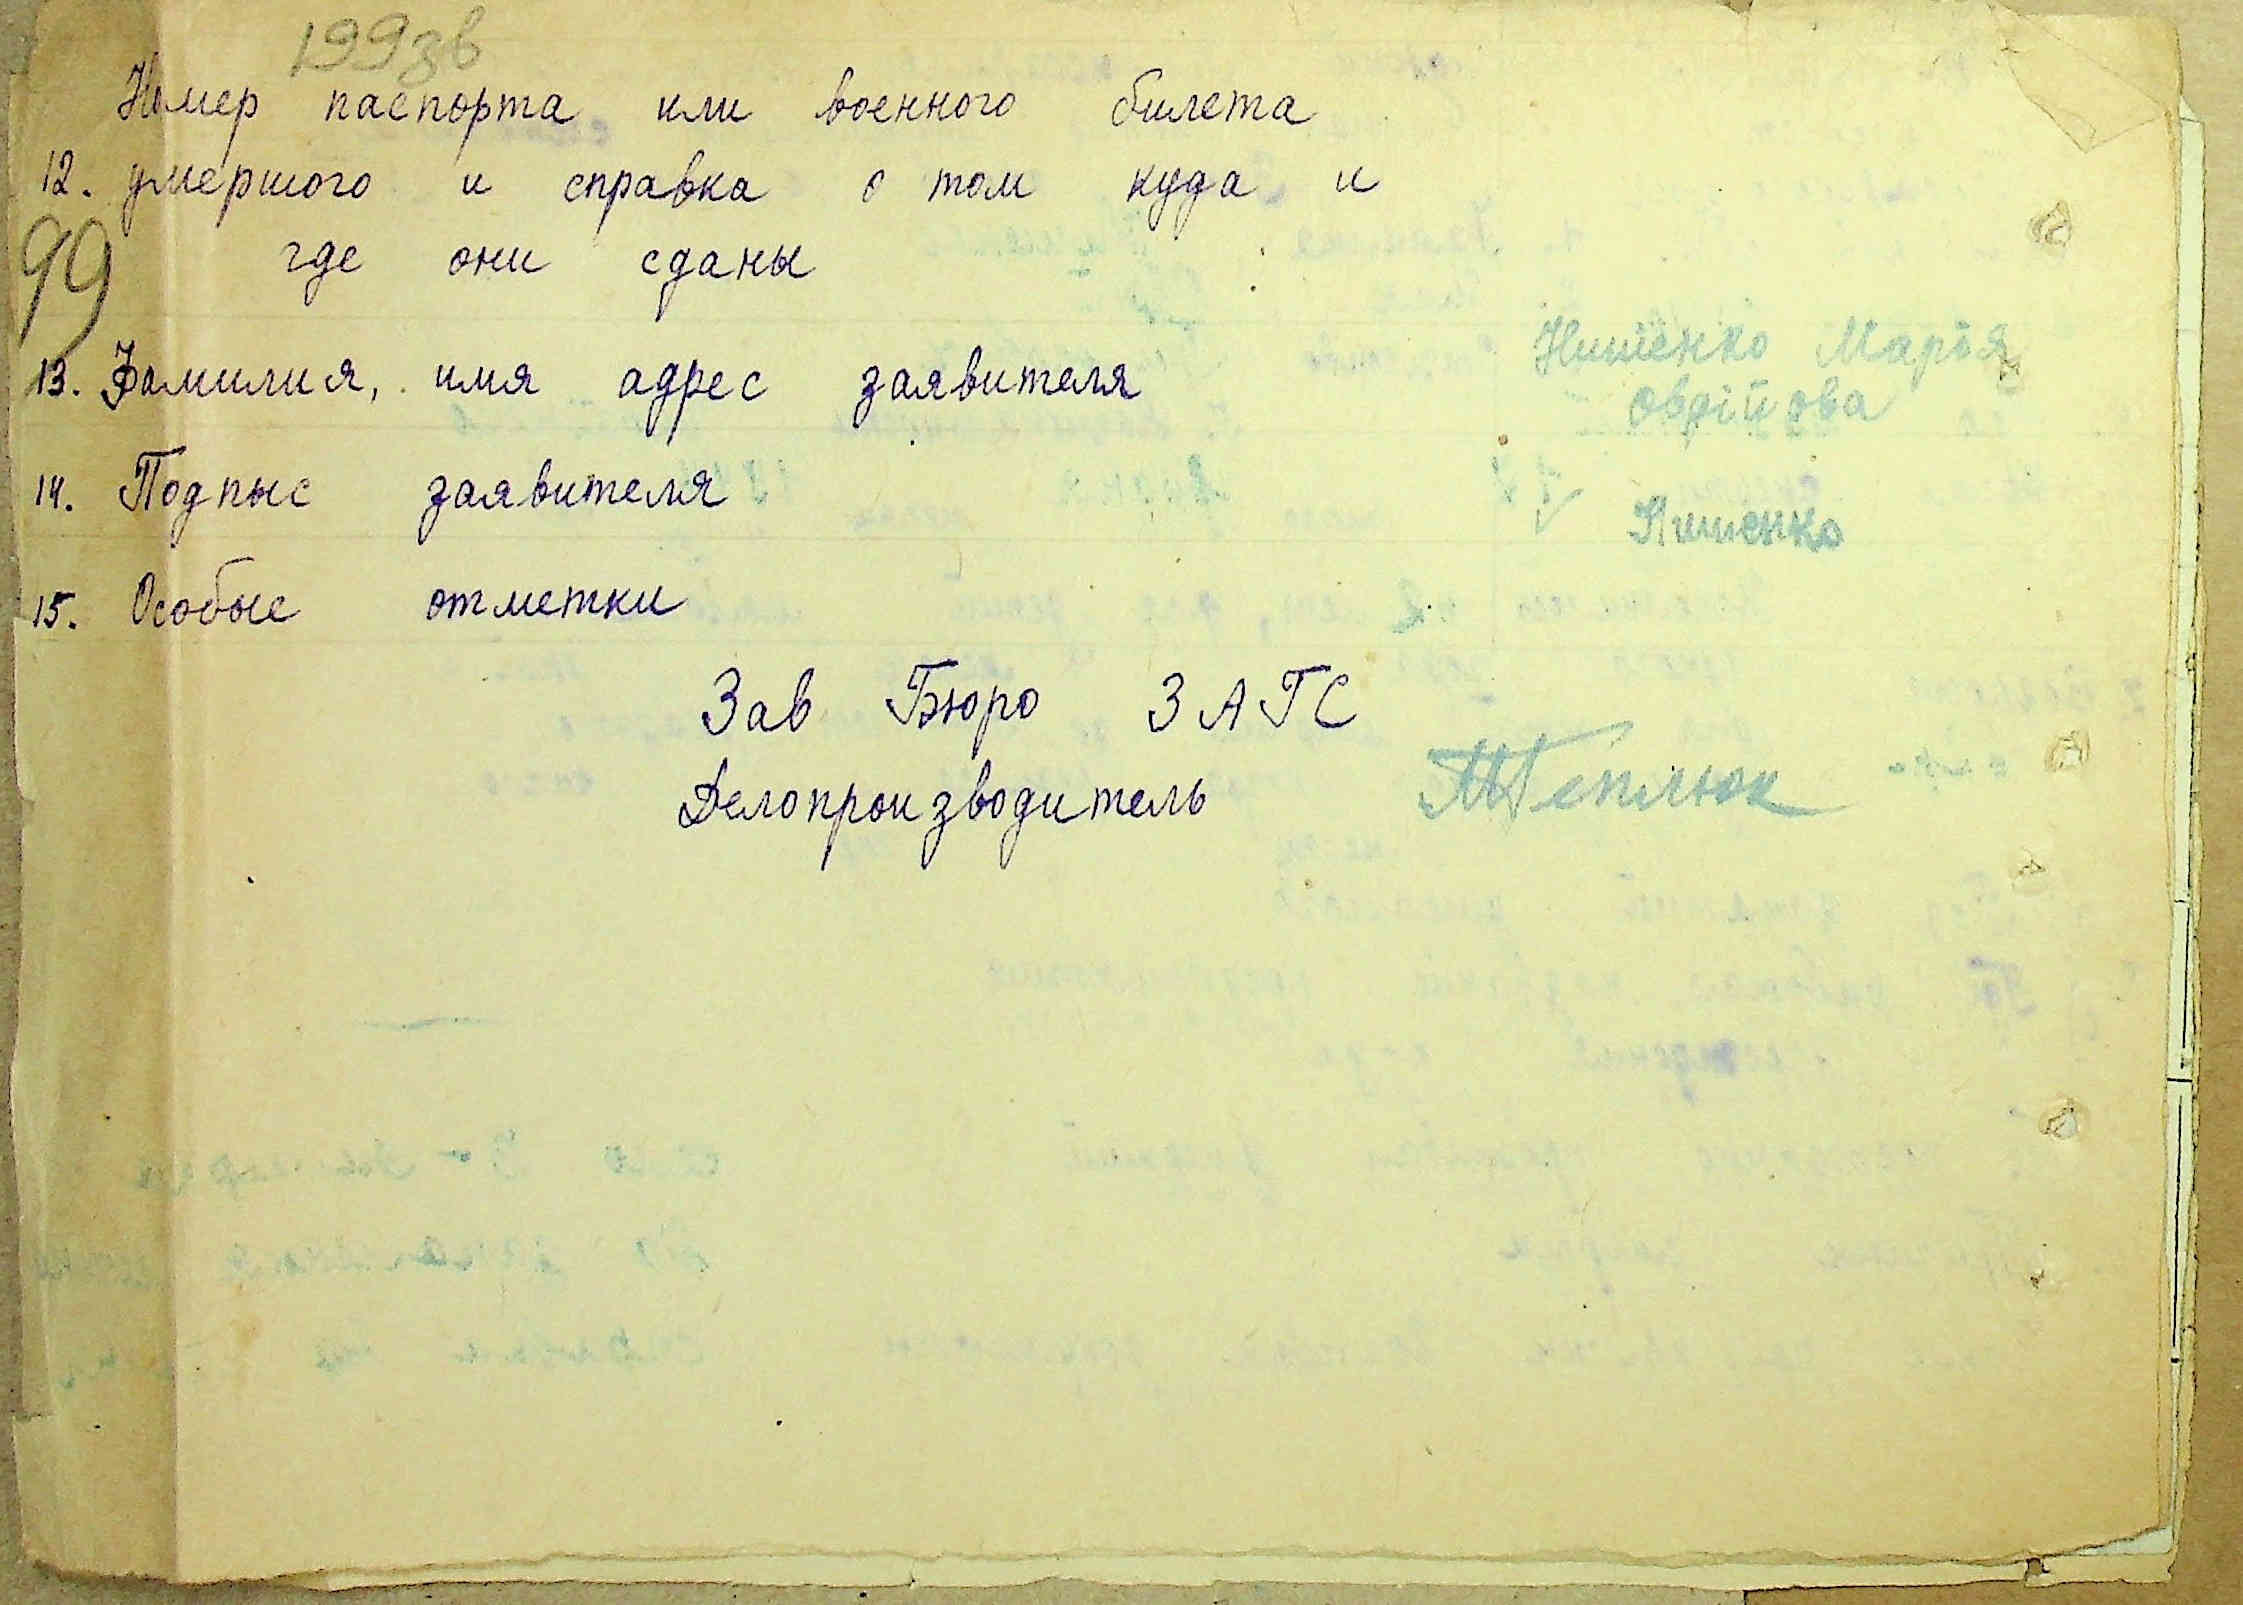 199зв
Номер паспорта или военного билета
12. умершого и справка о том куда и
где они сданы
99
13. Фамилия, имя адрес заявителя
Марія
14. Подпыс заявителя
15. Особые отметки
Зав Бюро ЗАГС
Делопроизводитель МТеплюк